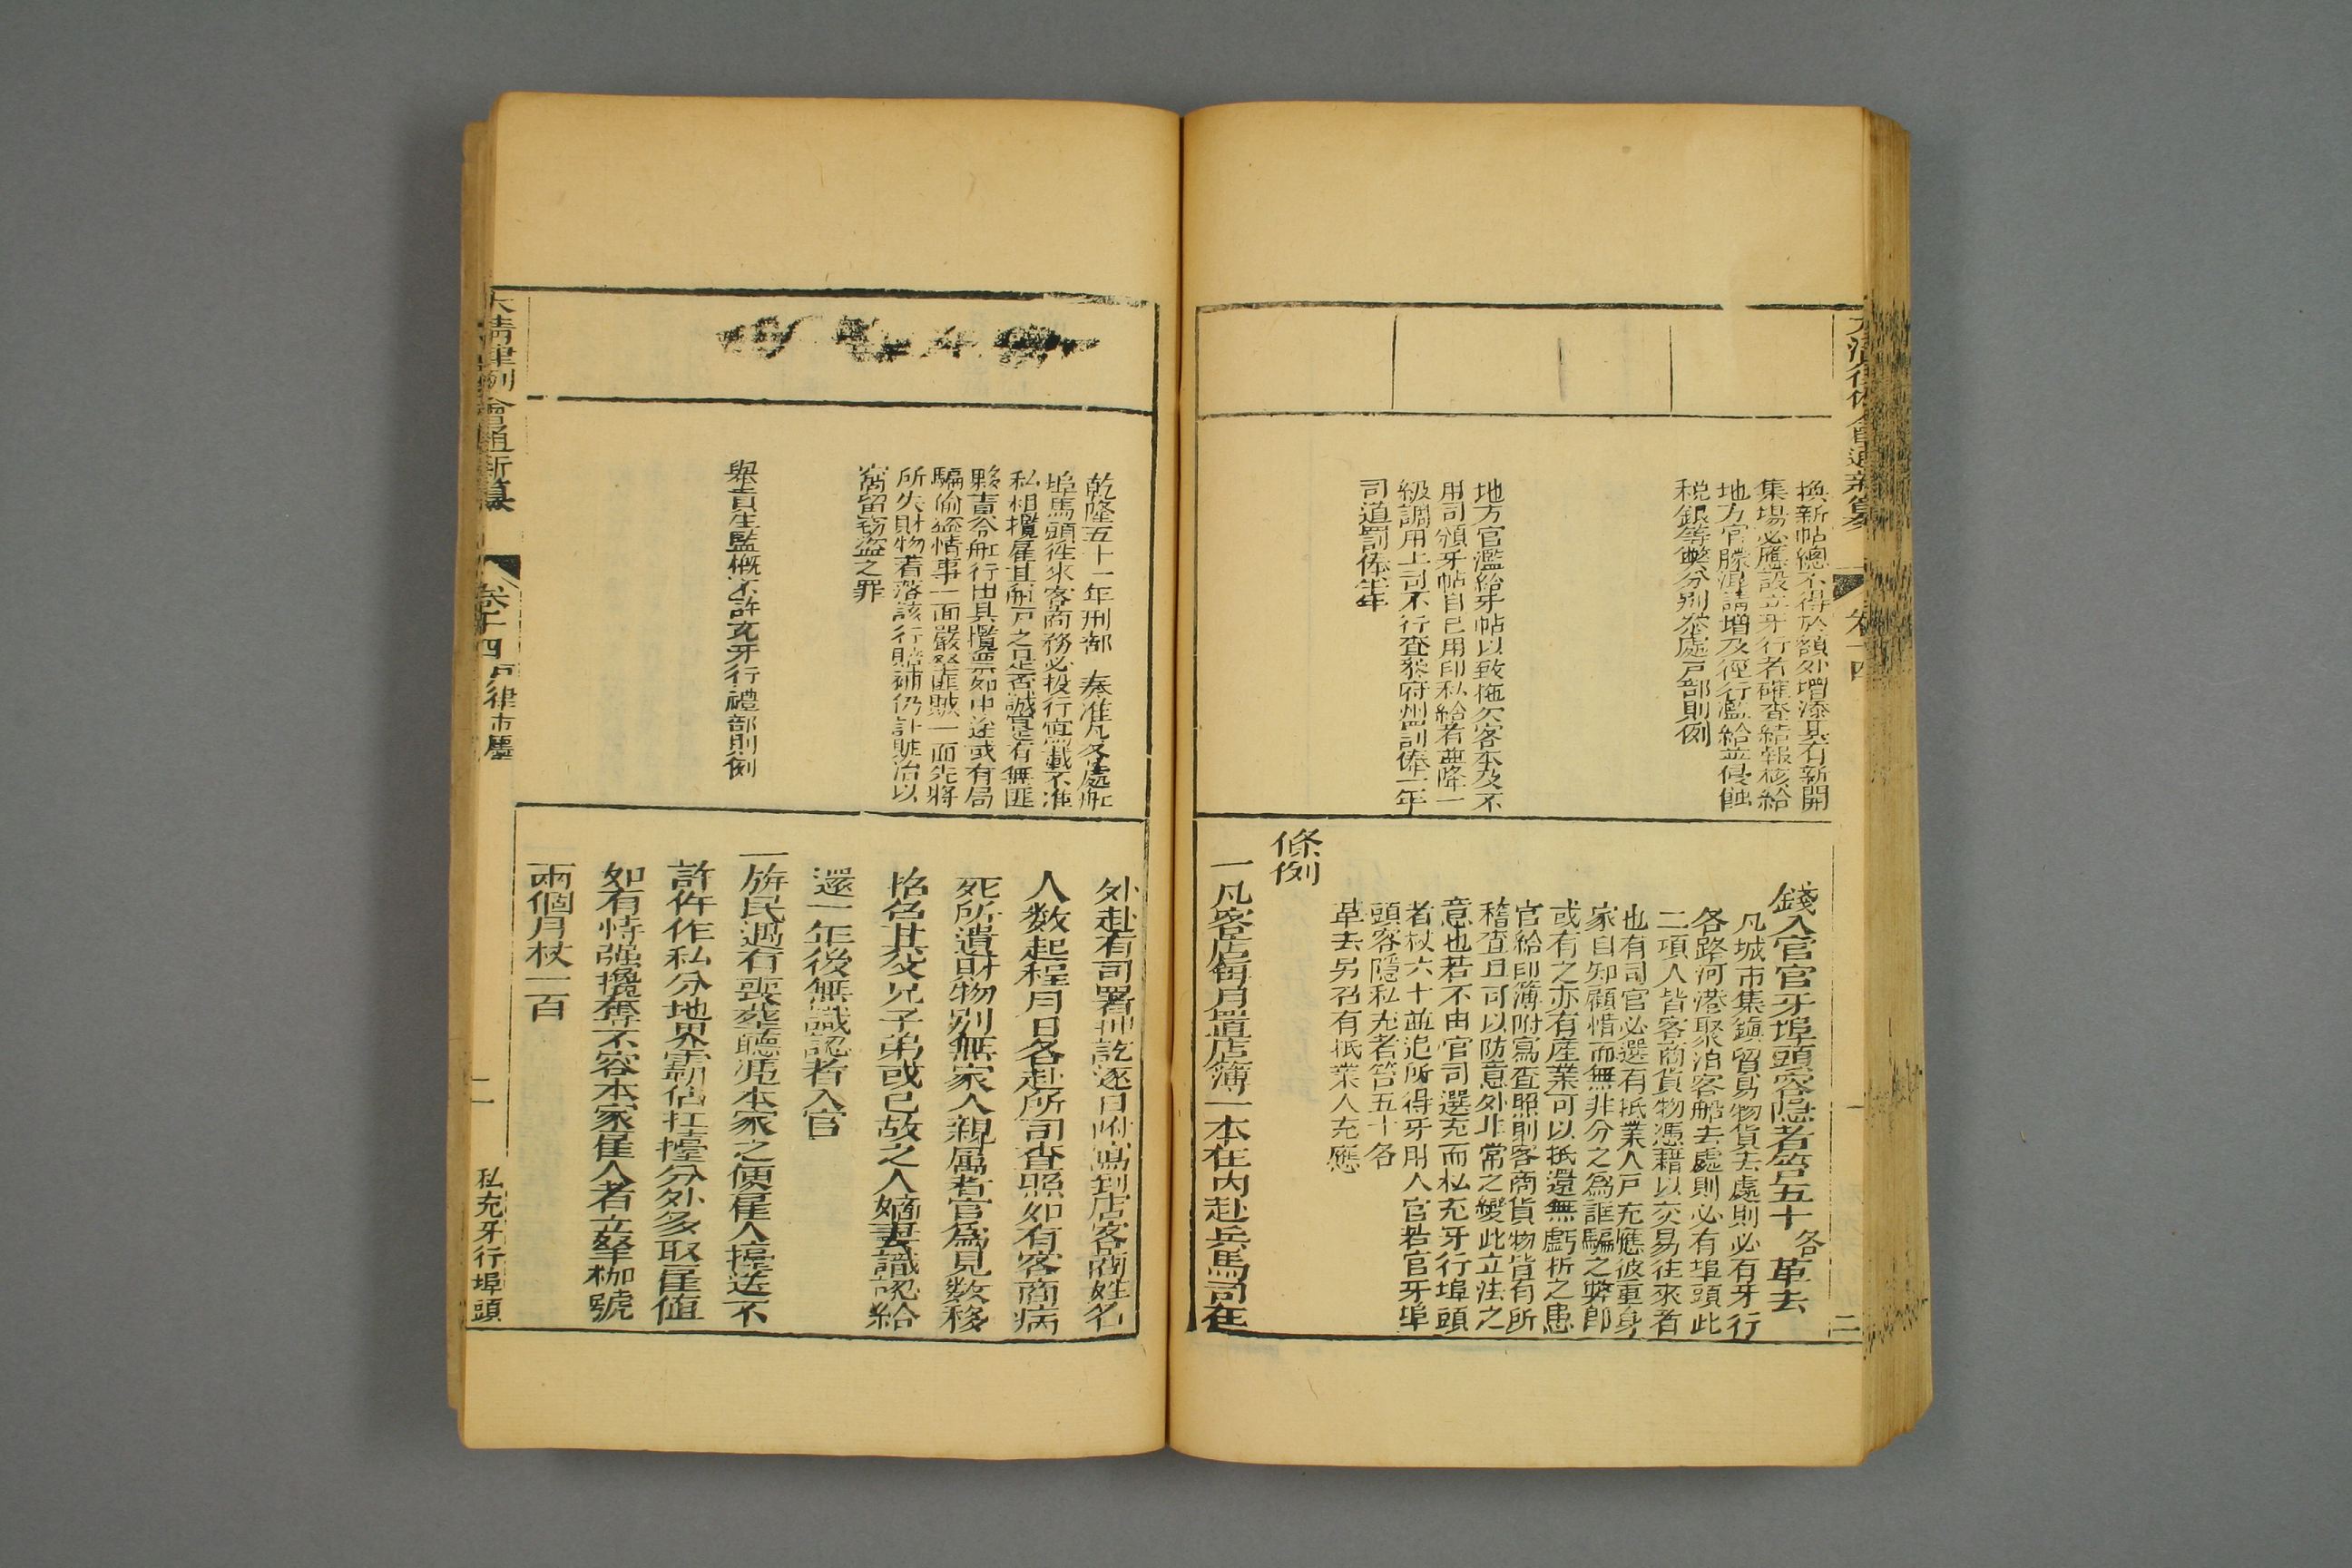 換新帖總不得於額外增添其有新開
集場必應設立牙行者確查結報核給
地方官朦混請增及徑行濫給並侵蝕
稅銀等弊分別叅處戶部則例
地方官濫給牙帖以致拖欠客本及不
用司頒牙帖自己用印私給者並降一
級調用上司不行查叅府州罰俸一年
司道罰俸半年
錢入官官牙埠頭容隱者笞五十各革去
凡城市集鎮貿易物貨去處則必有牙行
各路河港聚泊客船去處則必有埠頭此
二項人皆客商貨物憑藉以交易往來者
也有司官必選有抵業人戶充應彼重身
家自知顧惜而無非分之為誆騙之弊即
或有之亦有產業可以抵還無虧折之患
官給印簿附寫查照則客商貨物皆有所
稽查且可以防意外非常之變此立法之
意也若不由官司選充而私充牙行埠頭
者杖六十並追所得牙用入官若官牙埠
頭容隱私充者笞五十各
革去另召有抵業人充應
條例
一凡客店每月置店簿一本在內赴兵馬司在
乾隆五十一年刑部 奏准凡各處船
埠馬頭徃來客商務必投行寫載不准
私相攬雇其船戶之是否誠實有無匪
夥責令船行出具攬票如中途或有局
騙偷盜情事一面嚴拏匪賊一面先將
所失財物着落該行賠補仍計賍治以
窩留竊盜之罪
舉貢生監概不許充牙行禮部則例
外赴有司署押訖逐日附寫到店客商姓名
人数起程月日各赴所司查照如有客商病
死所遺財物別無家人親屬者官為見數移
招召其父兄子弟或已故之人嫡妻識認給
還一年後無識認者入官
一旂民遇有喪葬聽凭本家之便雇人擡送不
許仵作私分地界霸佔扛擡分外多取雇値
如有恃强攙奪不容本家雇人者立拏枷號
兩個月杖一百
大清律例會通新纂 卷十四 戶律市廛 二 私充牙行埠頭